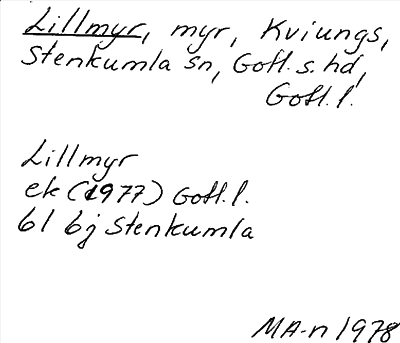 Lillmyr, myr, Kviungs,
Stenkumla sn, Gotl. s. hd,
Gotl. l.
Lillmyr
ek (1977) Gotl. l.
61 6j Stenkumla
MA-n 1978